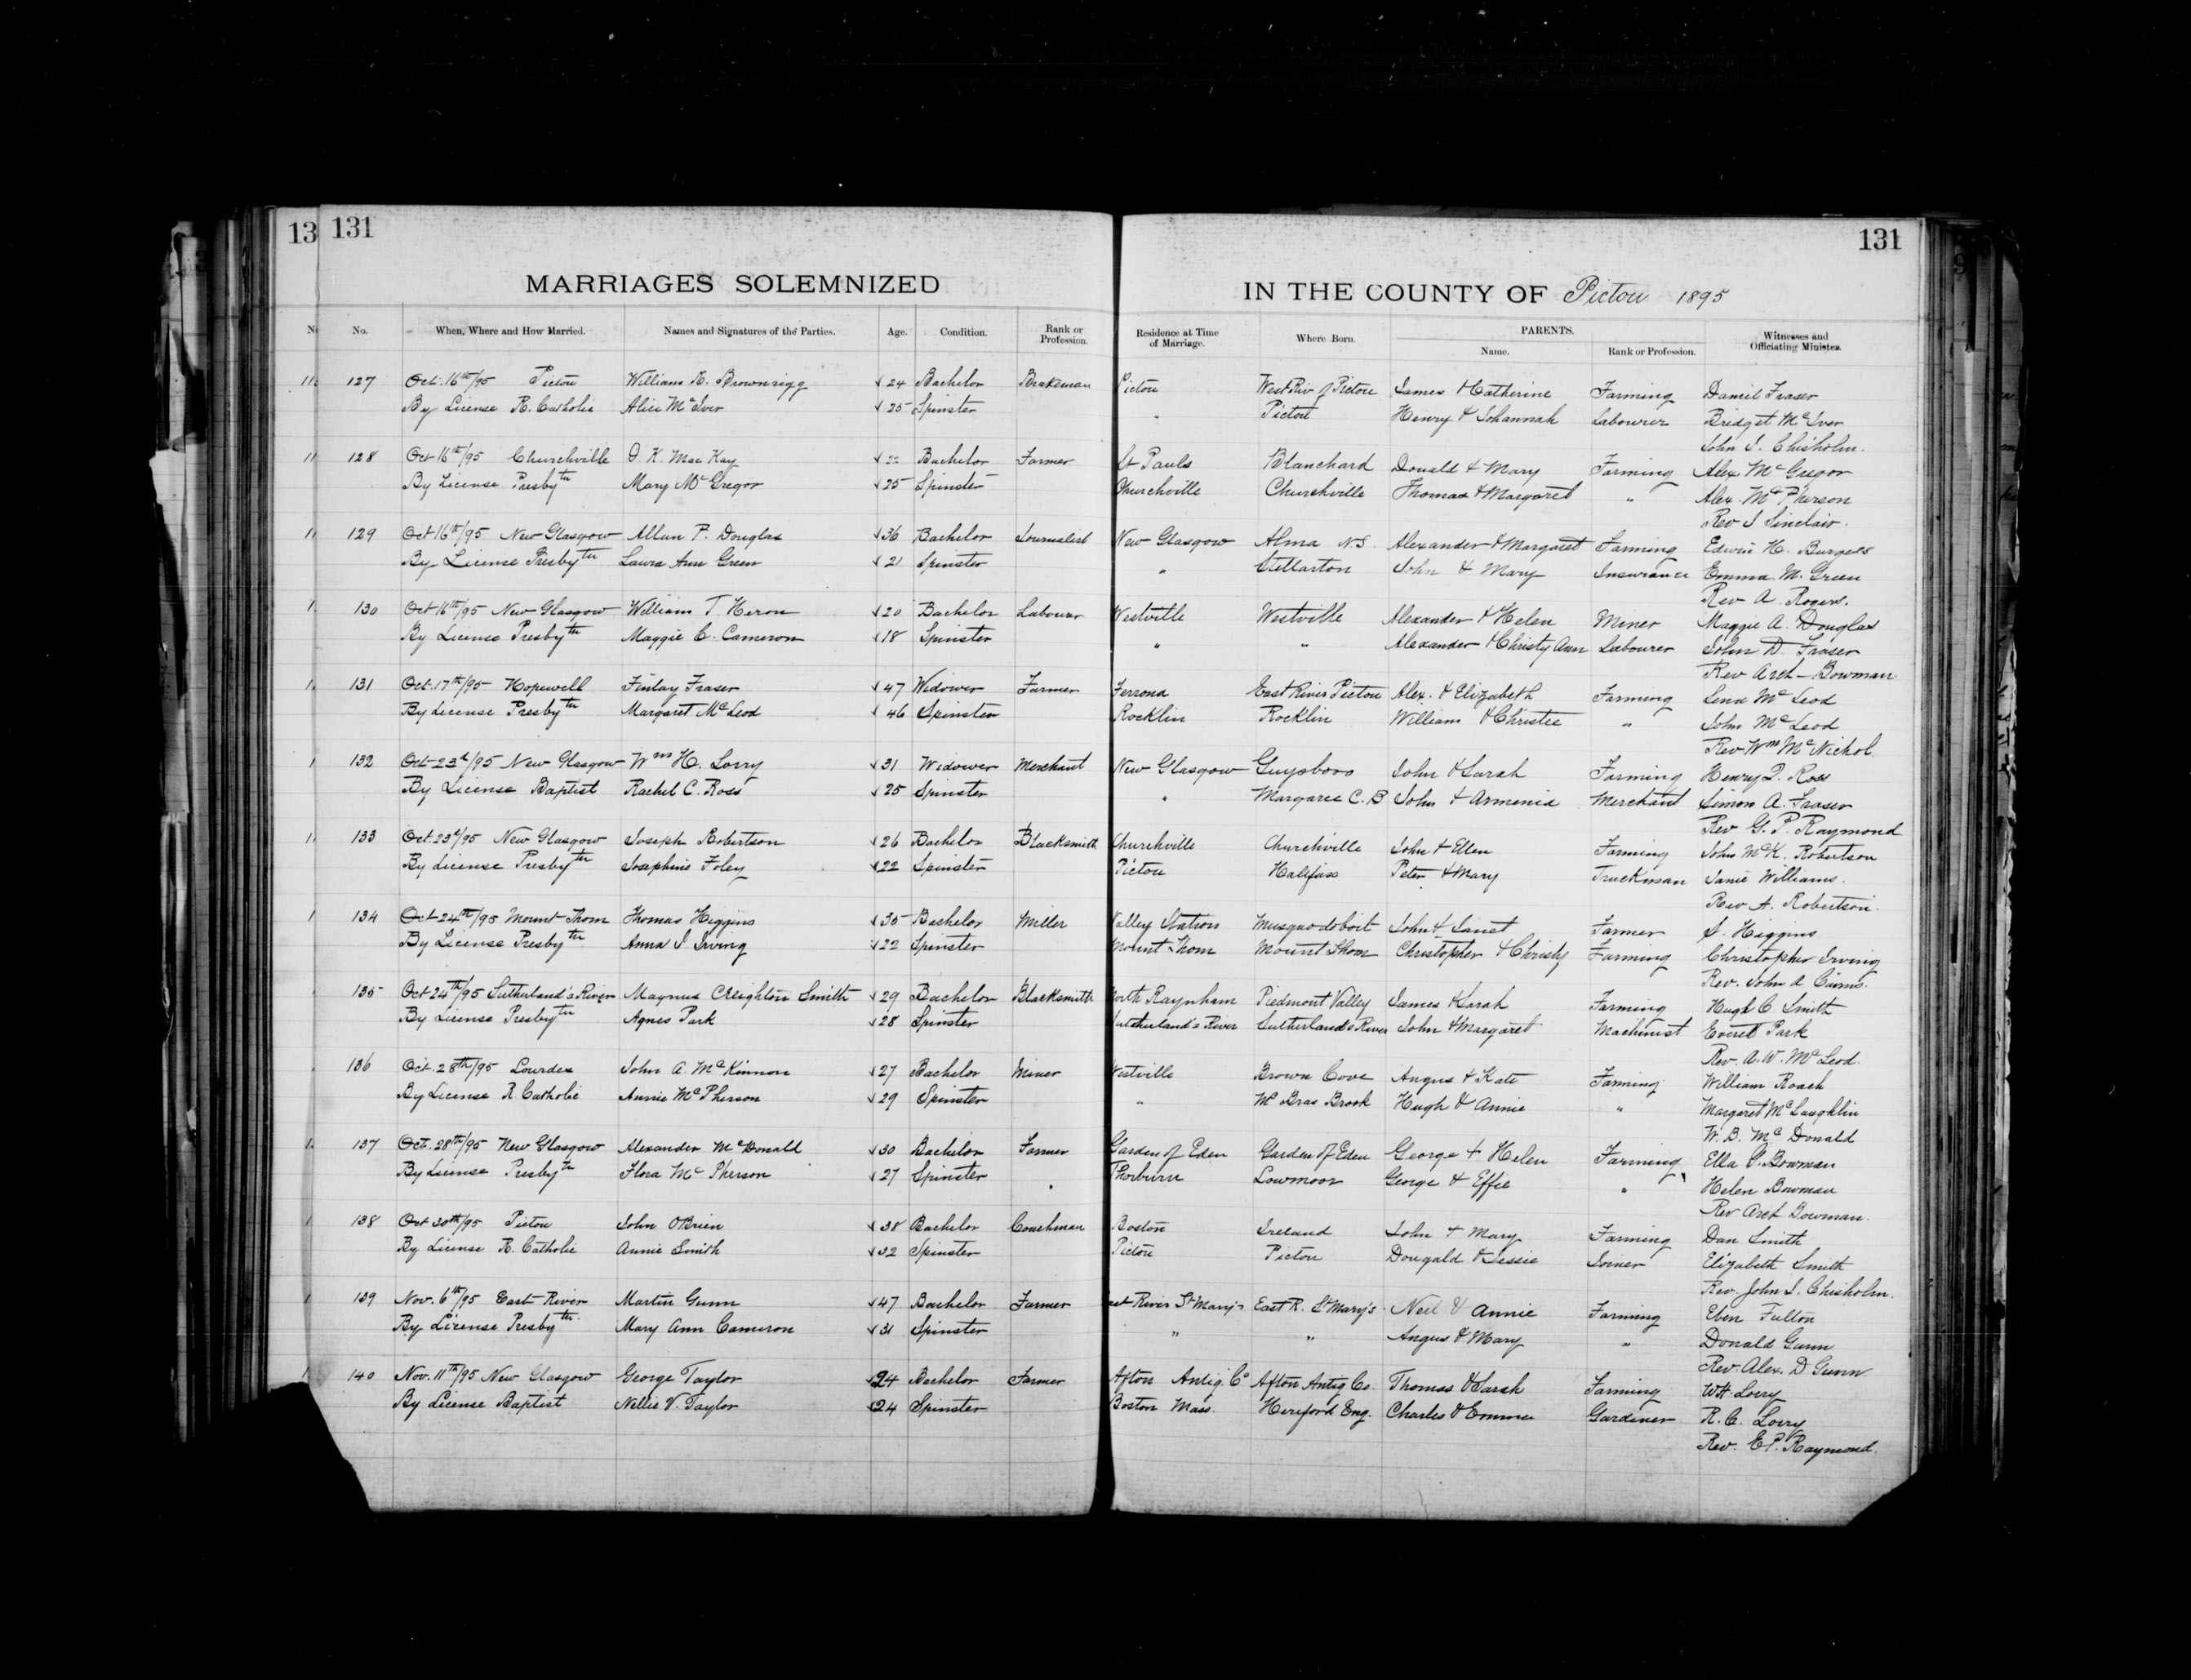 13 131
131
MARRIAGES SOLEMNIZED IN THE COUNTY OF Pictou 1895
No. When, Where and How Married. Names and Signatures of the Parties. Age. Condition. Rank or Profession. Residence at Time of Marriage. Where Born. PARENTS. Name. Rank or Profession. Witnesses and Officiating Minister.
127 Oct. 16th/95 Pictou William R. Brownrigg 24 Bachelor Brakeman Pictou West Riv of Pictou James & Catherine Farming Daniel Fraser
By License R. Catholic Alice McIver 25 Spinster " Pictou Henry & Johannah Labourer Bridget McIver
John J. Chisholm.
128 Oct 16th/95 Churchville D. K. MacKay Bachelor Farmer St Pauls Blanchard Donald & Mary Farming Alex McGregor
By License Presbytn Mary McGregor 25 Spinster Churchville Churchville Thomas & Margaret " Alex. McPherson
Rev J Sinclair.
129 Oct 16th/95 New Glasgow Allan P. Douglas 36 Bachelor Journalist New Glasgow Alma N.S. Alexander & Margaret Farming Edwin H. Burgess
By License Presbytn Laura Ann Green 21 Spinster " Stellarton John & Mary Insurance Emma M. Green
Rev A. Rogers.
130 Oct 16th/95 New Glasgow William T. Heron 20 Bachelor Labourer Westville Westville Alexander & Helen Miner Maggie A. Douglas
By License Presbytn Maggie C. Cameron 18 Spinster " " Alexander & Christy Ann Labourer John D. Fraser
Rev Arch Bowman
131 Oct. 17th/95 Hopewell Finlay Fraser 47 Widower Farmer Ferrona East River Pictou Alex. & Elizabeth Farming Lena McLeod
By License Presbytn Margaret McLeod 46 Spinster Rocklin Rocklin William & Christie " John McLeod
Rev Wm McNichol
132 Oct 23d/95 New Glasgow Wm H. Lorry 31 Widower Merchant New Glasgow Guysboro John & Sarah Farming Henry D. Ross
By License Baptist Rachel C. Ross 25 Spinster " Margaree C. B John & Armenia Merchant Simon A. Fraser
Rev G. P. Raymond
133 Oct. 23d/95 New Glasgow Joseph Robertson 26 Bachelor Blacksmith Churchville Churchville John & Ellen Farming John McK. Robertson
By License Presbytn Josephine Foley 22 Spinster Pictou Halifax Peter & Mary Truckman Janie Williams.
Rev A. Robertson.
134 Oct 24th/95 Mount Thom Thomas Higgins 35 Bachelor Miller Valley Station Musquodoboit John & Janet Farmer J. Higgins
By License Presbytn Anna J Irving 22 Spinster Mount Thom Mount Thom Christopher & Christy Farming Christopher Irving
Rev. John A Cairns.
135 Oct 24th/95 Sutherland's River Magnus Creighton Smith 29 Bachelor Blacksmith North Raynham Piedmont Valley James & Sarah Farming Hugh C Smith
By License Presbytn Agnes Park 28 Spinster Sutherland's River Sutherland's River John & Margaret Machinist Everet Park
Rev. A. W. McLeod.
136 Oct. 28th/95 Lourdes John A. McKinnon 27 Bachelor Miner Westville Brown Cove Angus & Kate Farming William Roach
By License R. Catholic Annie McPherson 29 Spinster " McBras Brook Hugh & Annie " Margaret McLaughlin
W. B. McDonald
137 Oct. 28th/95 New Glasgow Alexander McDonald 30 Bachelor Farmer Garden of Eden Garden of Eden George & Helen Farming Ella J. Bowman
By License Presbytn Flora McPherson 27 Spinster Thorburn Lowmoor George & Effie " Helen Bowman
Rev Arch Bowman.
138 Oct 30th/95 Pictou John O'Brien 38 Bachelor Coachman Boston Ireland John & Mary Farming Dan Smith
By License R. Catholic Annie Smith 32 Spinster Pictou Pictou Dougald & Jessie Joiner Elizabeth Smith
Rev. John J. Chisholm.
139 Nov. 6th/95 East River Martin Gunn 47 Bachelor Farmer East River St Mary's East R. St Mary's Neil & Annie Farming Eben Fulton
By License Presbytn. Mary Ann Cameron 31 Spinster " " Angus & Mary " Donald Gunn
Rev. Alex. D Gunn
140 Nov. 11th/95 New Glasgow George Taylor 24 Bachelor Farmer Afton Antig. Co Afton Antig Co. Thomas & Sarah Farming W H Lorry
By License Baptist Nellie V. Taylor 24 Spinster Boston Mass. Hereford Eng. Charles & Emma Gardiner R. C. Lorry
Rev. E P. Raymond.